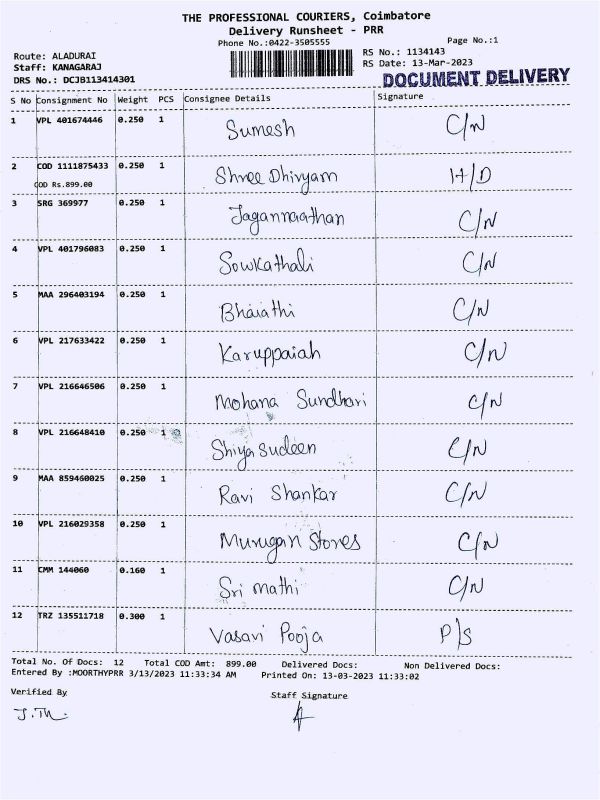 THE PROFESSIONAL COURIERS, Coimbatore
Delivery Runsheet - PRR
Phone No.:0422-3505555
Page No.:1
Route: ALADURAI
RS No.: 1134143
Staff: KANAGARAJ
RS Date: 13-Mar-2023
DRS No.: DCJB113414301
DOCUMENT DELIVERY
S No Consignment No Weight PCS Consignee Details Signature
1 VPL 401674446 0.250 1 Sumesh C/N
2 COD 1111875433 0.250 1 Shree Dhivyam H/D
COD Rs.899.00
3 SRG 369977 0.250 1 Jagannaathan C/N
4 VPL 401796083 0.250 1 Sowkathali C/N
5 MAA 296403194 0.250 1 Bharathi C/N
6 VPL 217633422 0.250 1 Karuppaiah C/N
7 VPL 216646506 0.250 1 Mohana Sundhari C/N
8 VPL 216648410 0.250 1 Shiyasudeen C/N
9 MAA 859460025 0.250 1 Ravi Shankar C/N
10 VPL 216029358 0.250 1 Murugan Stores C/N
11 CMM 144060 0.160 1 Sri mathi C/N
12 TRZ 135511718 0.300 1 Vasavi Pooja P/S
Total No. Of Docs: 12 Total COD Amt: 899.00 Delivered Docs: Non Delivered Docs:
Entered By :MOORTHYPRR 3/13/2023 11:33:34 AM Printed On: 13-03-2023 11:33:02
Verified By
Staff Signature